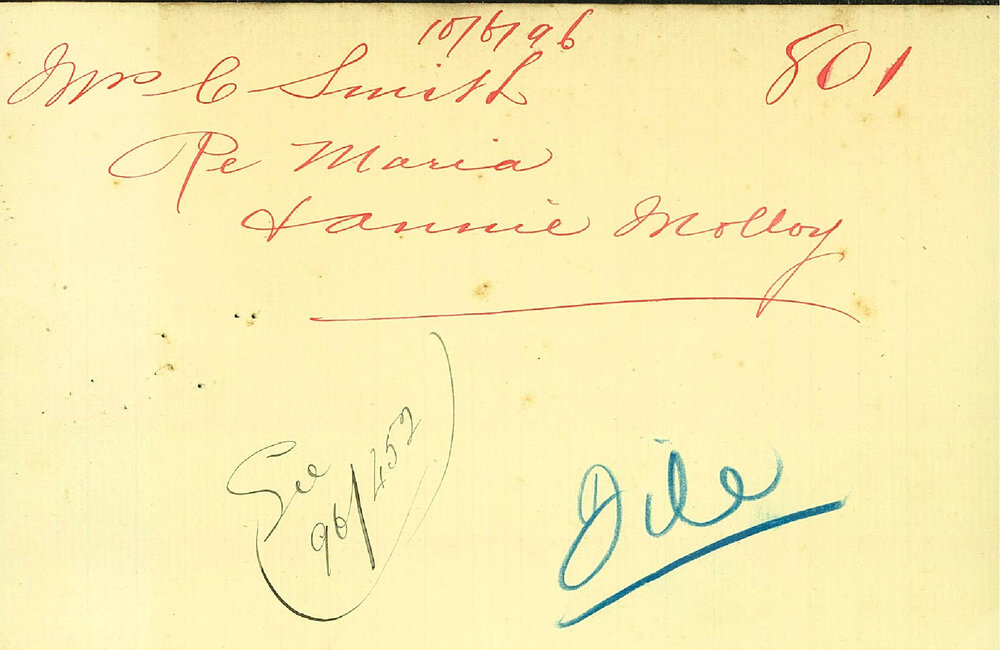 10/6/96
801
Mrs C Smith
Re Maria
& Annie Molloy
See
96/452
File